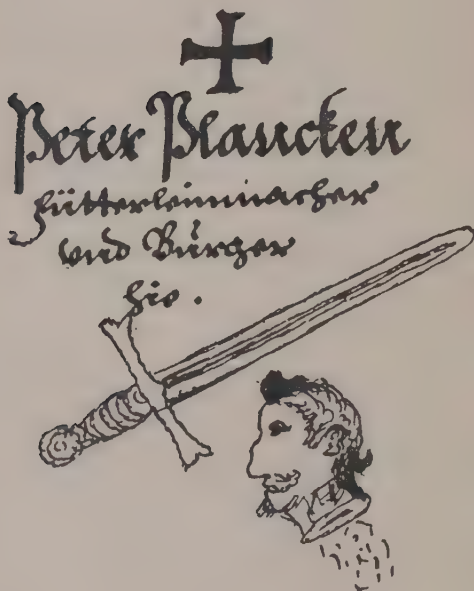 Peter Plancken
Fütterleinmacher
vnd Bürger
hie.